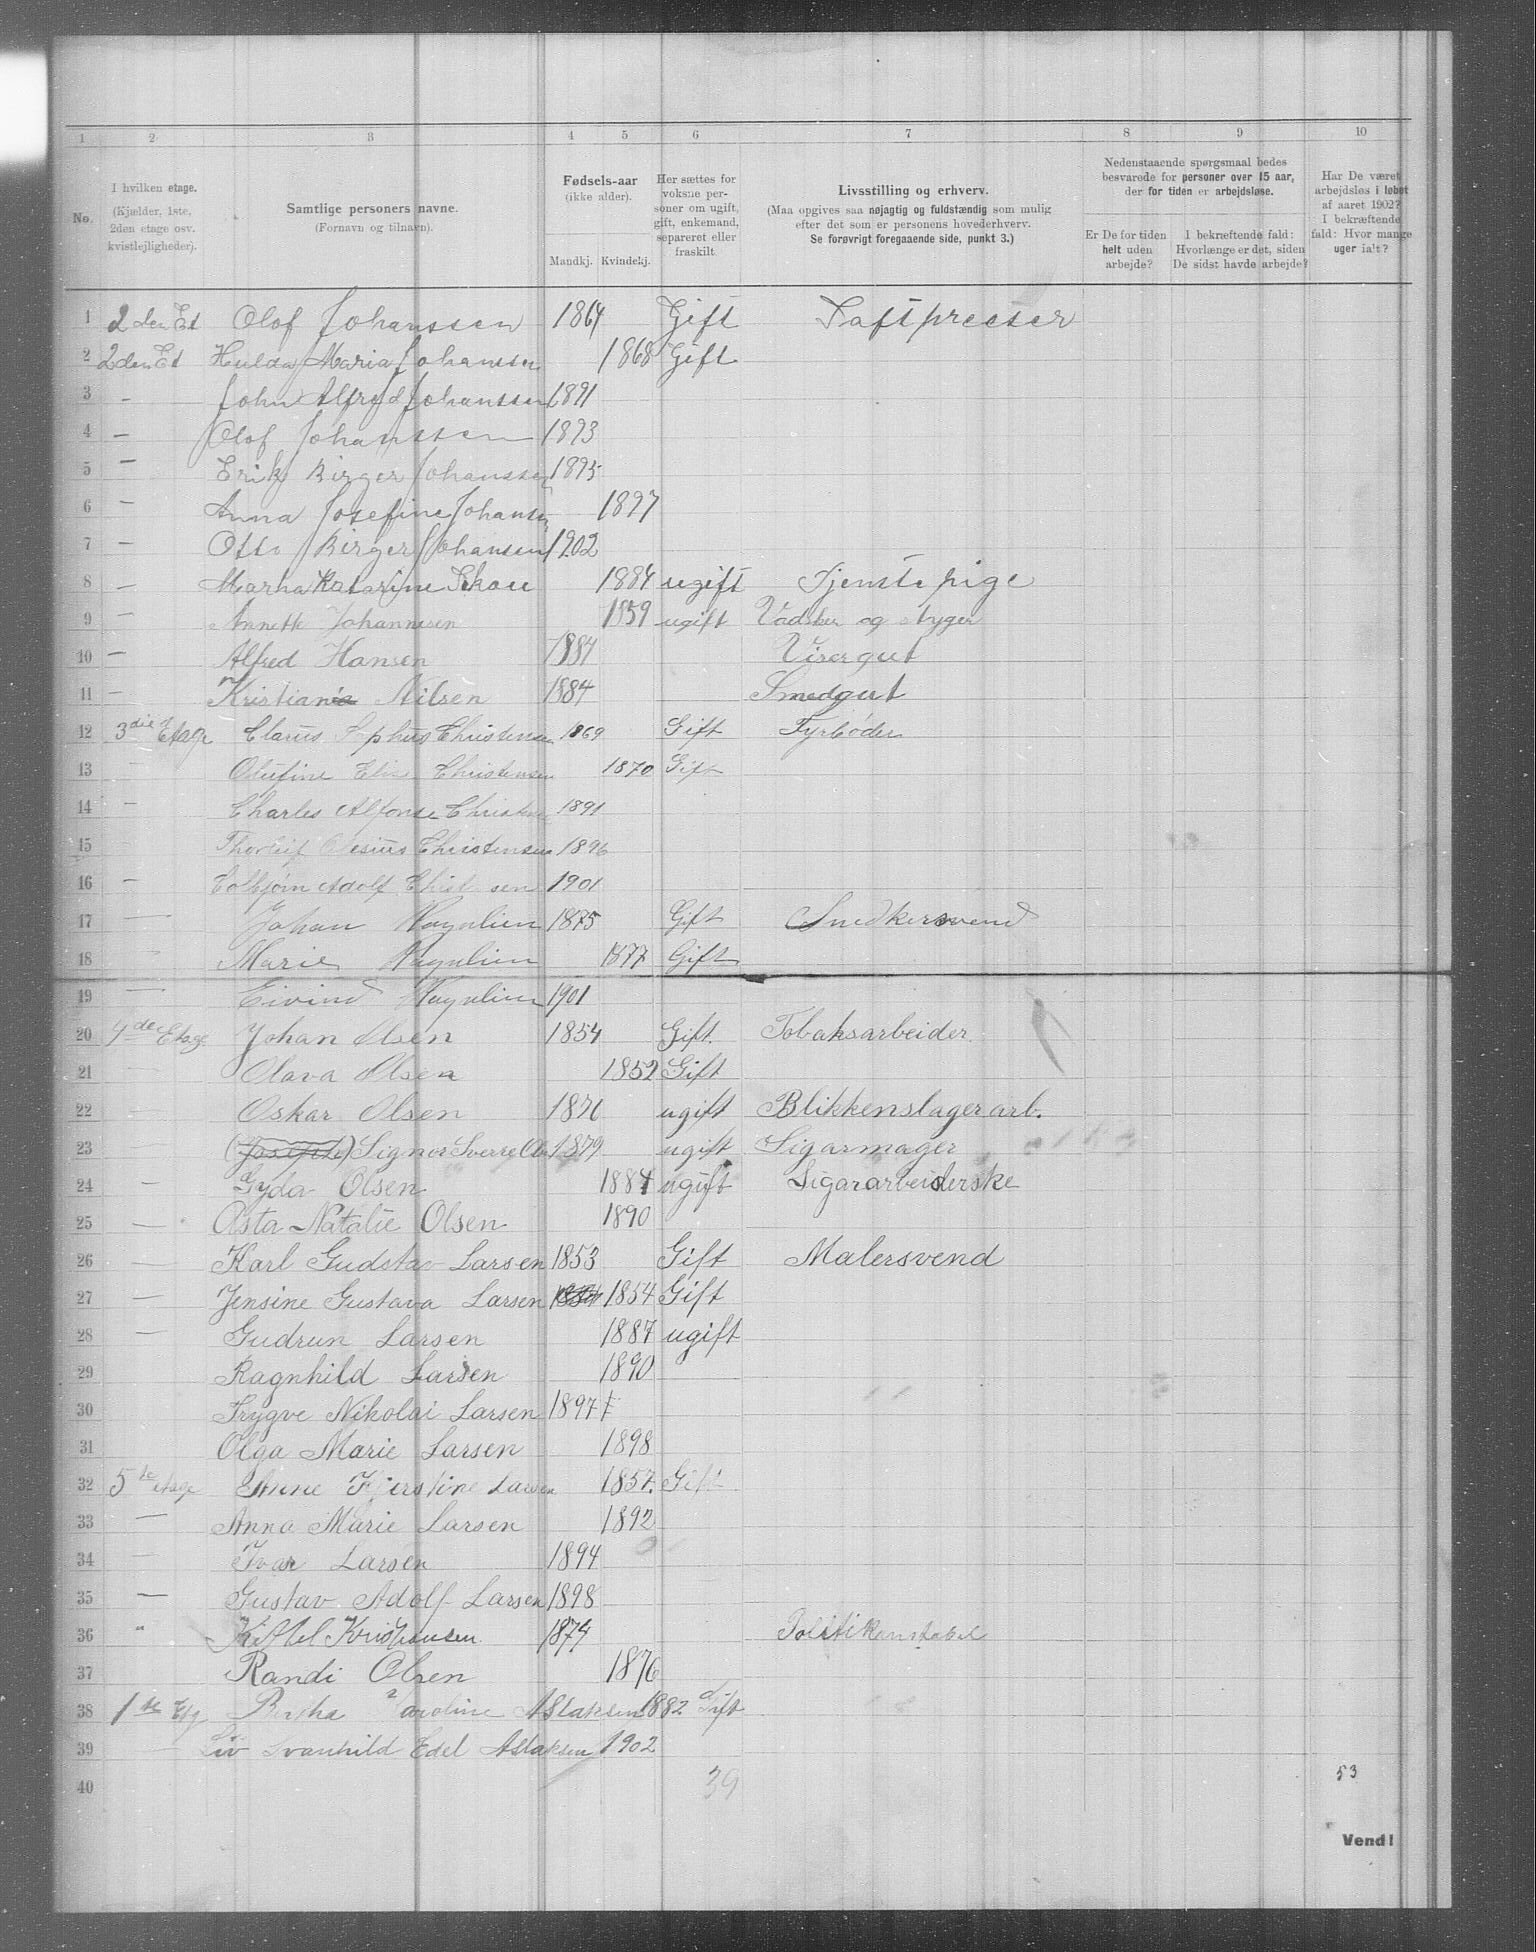 1 2 3 4 5 6 7 8 9 10
No.
I hvilken etage.
(Kjælder, 1ste,
2den etage osv.
kvistlejligheder).
Samtlige personers navne.
(Fornavn og tilnavn).
Fødsels-aar
(ikke alder).
Mandkj. Kvindekj.
Her sættes for
voksne per-
soner om ugift,
gift, enkemand,
separeret eller
fraskilt.
Livsstilling og erhverv.
(Maa opgives saa nøjagtig og fuldstændig som mulig
efter det som er personens hovederhverv.
Se forøvrigt foregaaende side, punkt 3.)
Nedenstaaende spørgsmaal bedes
besvarede for personer over 15 aar,
der for tiden er arbejdsløse.
Er De for tiden
helt uden
arbejde?
I bekræftende fald:
Hvorlænge er det, siden
De sidst havde arbejde?
Har De været
arbejdsløs i løbet
af aaret 1902?
I bekræftende
fald: Hvor mange
uger ialt?
1 2den Et Olof Johanssen 1864 Gift Saftpresser
2 2den Et Hulda Maria Johanssen 1868 Gift
3 – John Alfred Johanssen 1891
4 – Olof Johanssen 1893
5 – Erik Birger Johanssen 1895
6 – Anna Josefine Johansen 1897
7 – Otto Birger Johansen 1902
8 – Marna Katarine Skou 1884 ugift Tjenstepige
9 – Annette Johannesen 1859 ugift Vadsker og stryger
10 – Alfred Hansen 1884 Visergut
11 – Kristian Nilsen 1884 Smedgut
12 3die Etage Clarius Sophus Christensen 1869 Gift Fyrbøder
13 – Olufine Elise Christensen 1870 Gift
14 – Charles Alfonse Christensen 1891
15 – Thorleif Christensen 1896
16 – Colbjørn Adolf Christensen 1901
17 – Johan 1875 Gift Snedkersvend
18 – Marie 1877 Gift
19 – Eivind 1901
20 4de Etage Johan Olsen 1854 Gift. Tobaksarbeider.
21 – Olava Olsen 1852 Gift
22 – Oskar Olsen 1876 ugift Blikkenslagerarb.
23 – Signor Sverre Ols 1879 ugift Sigarmager
24 – Gyda Olsen 1884 ugift Sigararbeiderske
25 – Asta Natalie Olsen 1890
26 – Karl Gudstav Larsen 1853 Gift Malersvend
27 – Jensine Gustava Larsen 1854 Gift
28 – Gudrun Larsen 1887 ugift
29 – Ragnhild Larsen 1890
30 – Trygve Nikolai Larsen 1897
31 – Olga Marie Larsen 1898
32 5te etage Anne Kjerstine Larsen 1857. Gift
33 – Anna Marie Larsen 1892
34 – Ivar Larsen 1894
35 – Gustav Adolf Larsen 1898
36 " Kittel Kristiansen 1874 Politikonstabel
37 Randi Olsen 1876
38 1ste Etg Bertha Karoline Aslaksen 1882 Gift
39 – Liv Svanhild Edel Aslaksen 1902
40 39 53
Vend!